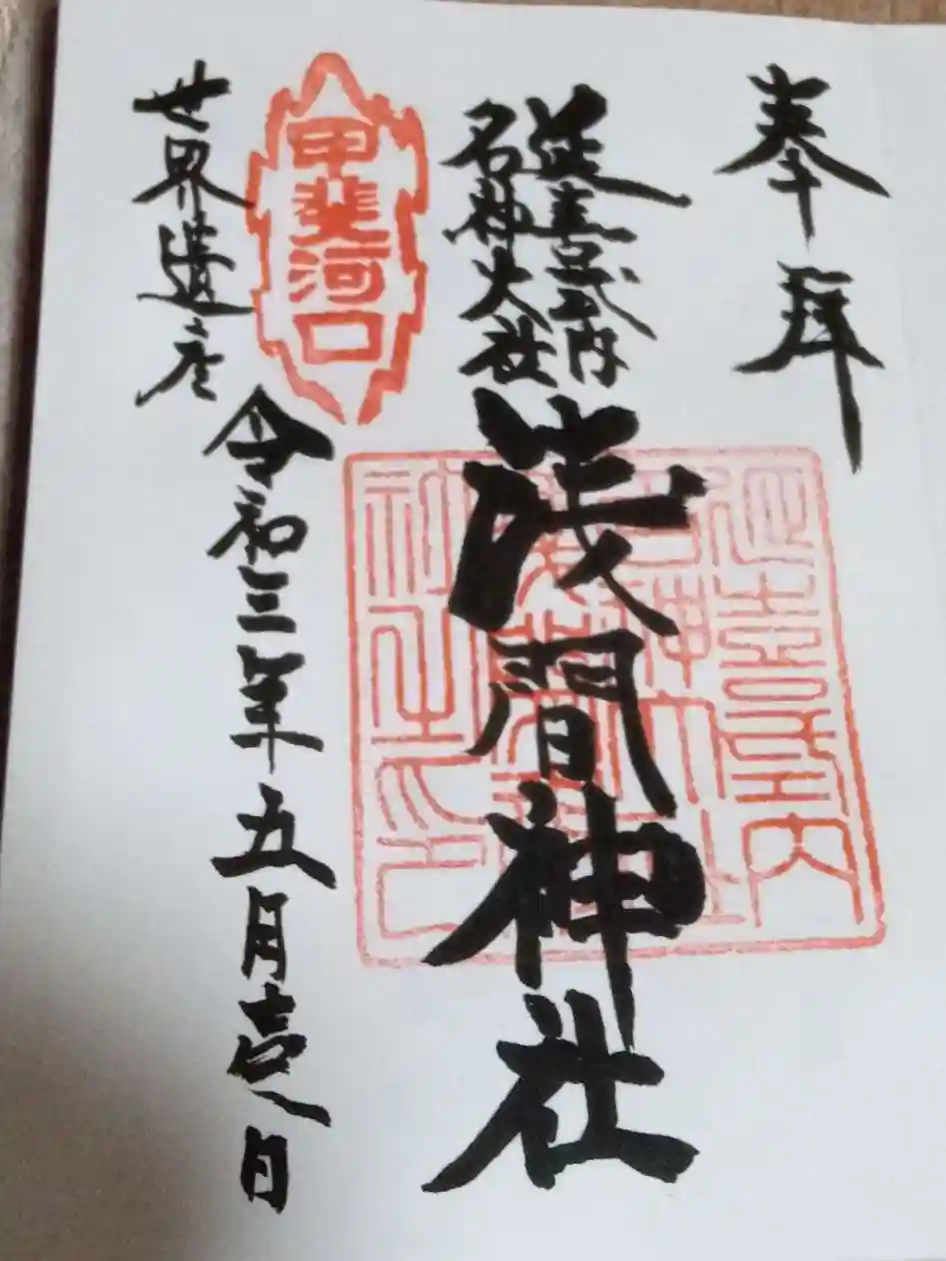 奉拝
延喜式内
名神大社
浅間神社
甲斐河口
世界遺産
令和三年五月壱日